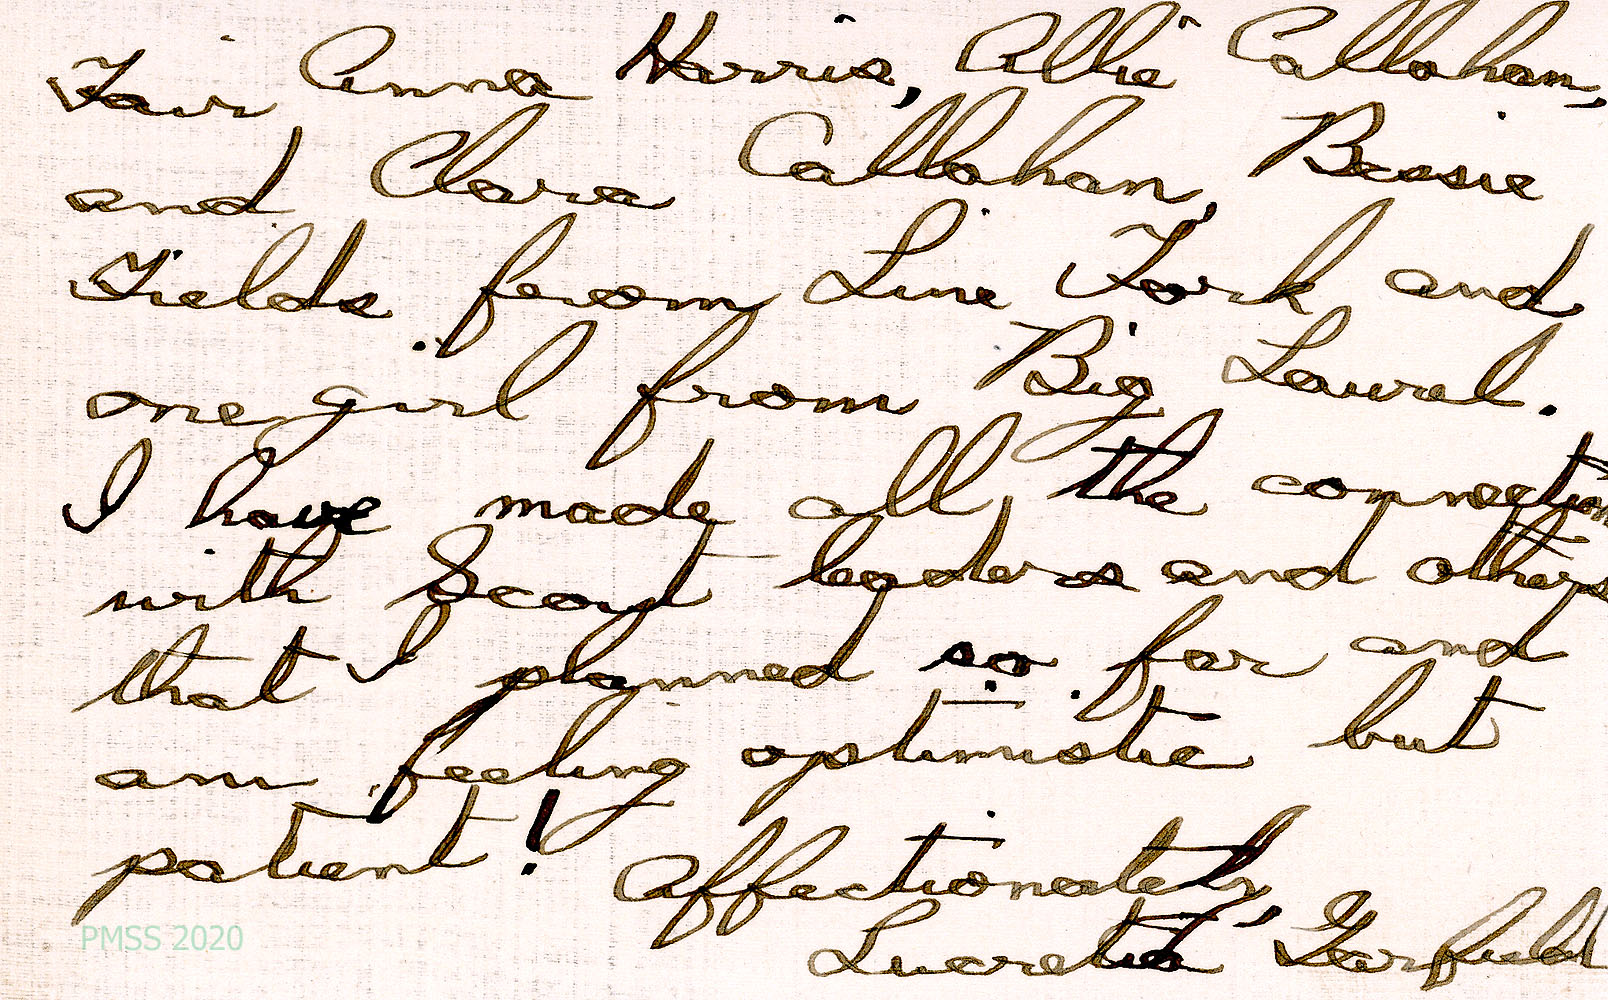 Fair Anna Harris, Allie Callahan,
and Clara Callahan, Bessie
Fields from Line Fork and
one girl from Big Laurel.
I have made all the connections
with Scout leaders and others
that I planned so far and
am feeling optimistic but
patient!
Affectionately,
Lucretia Garfield
PMSS 2020